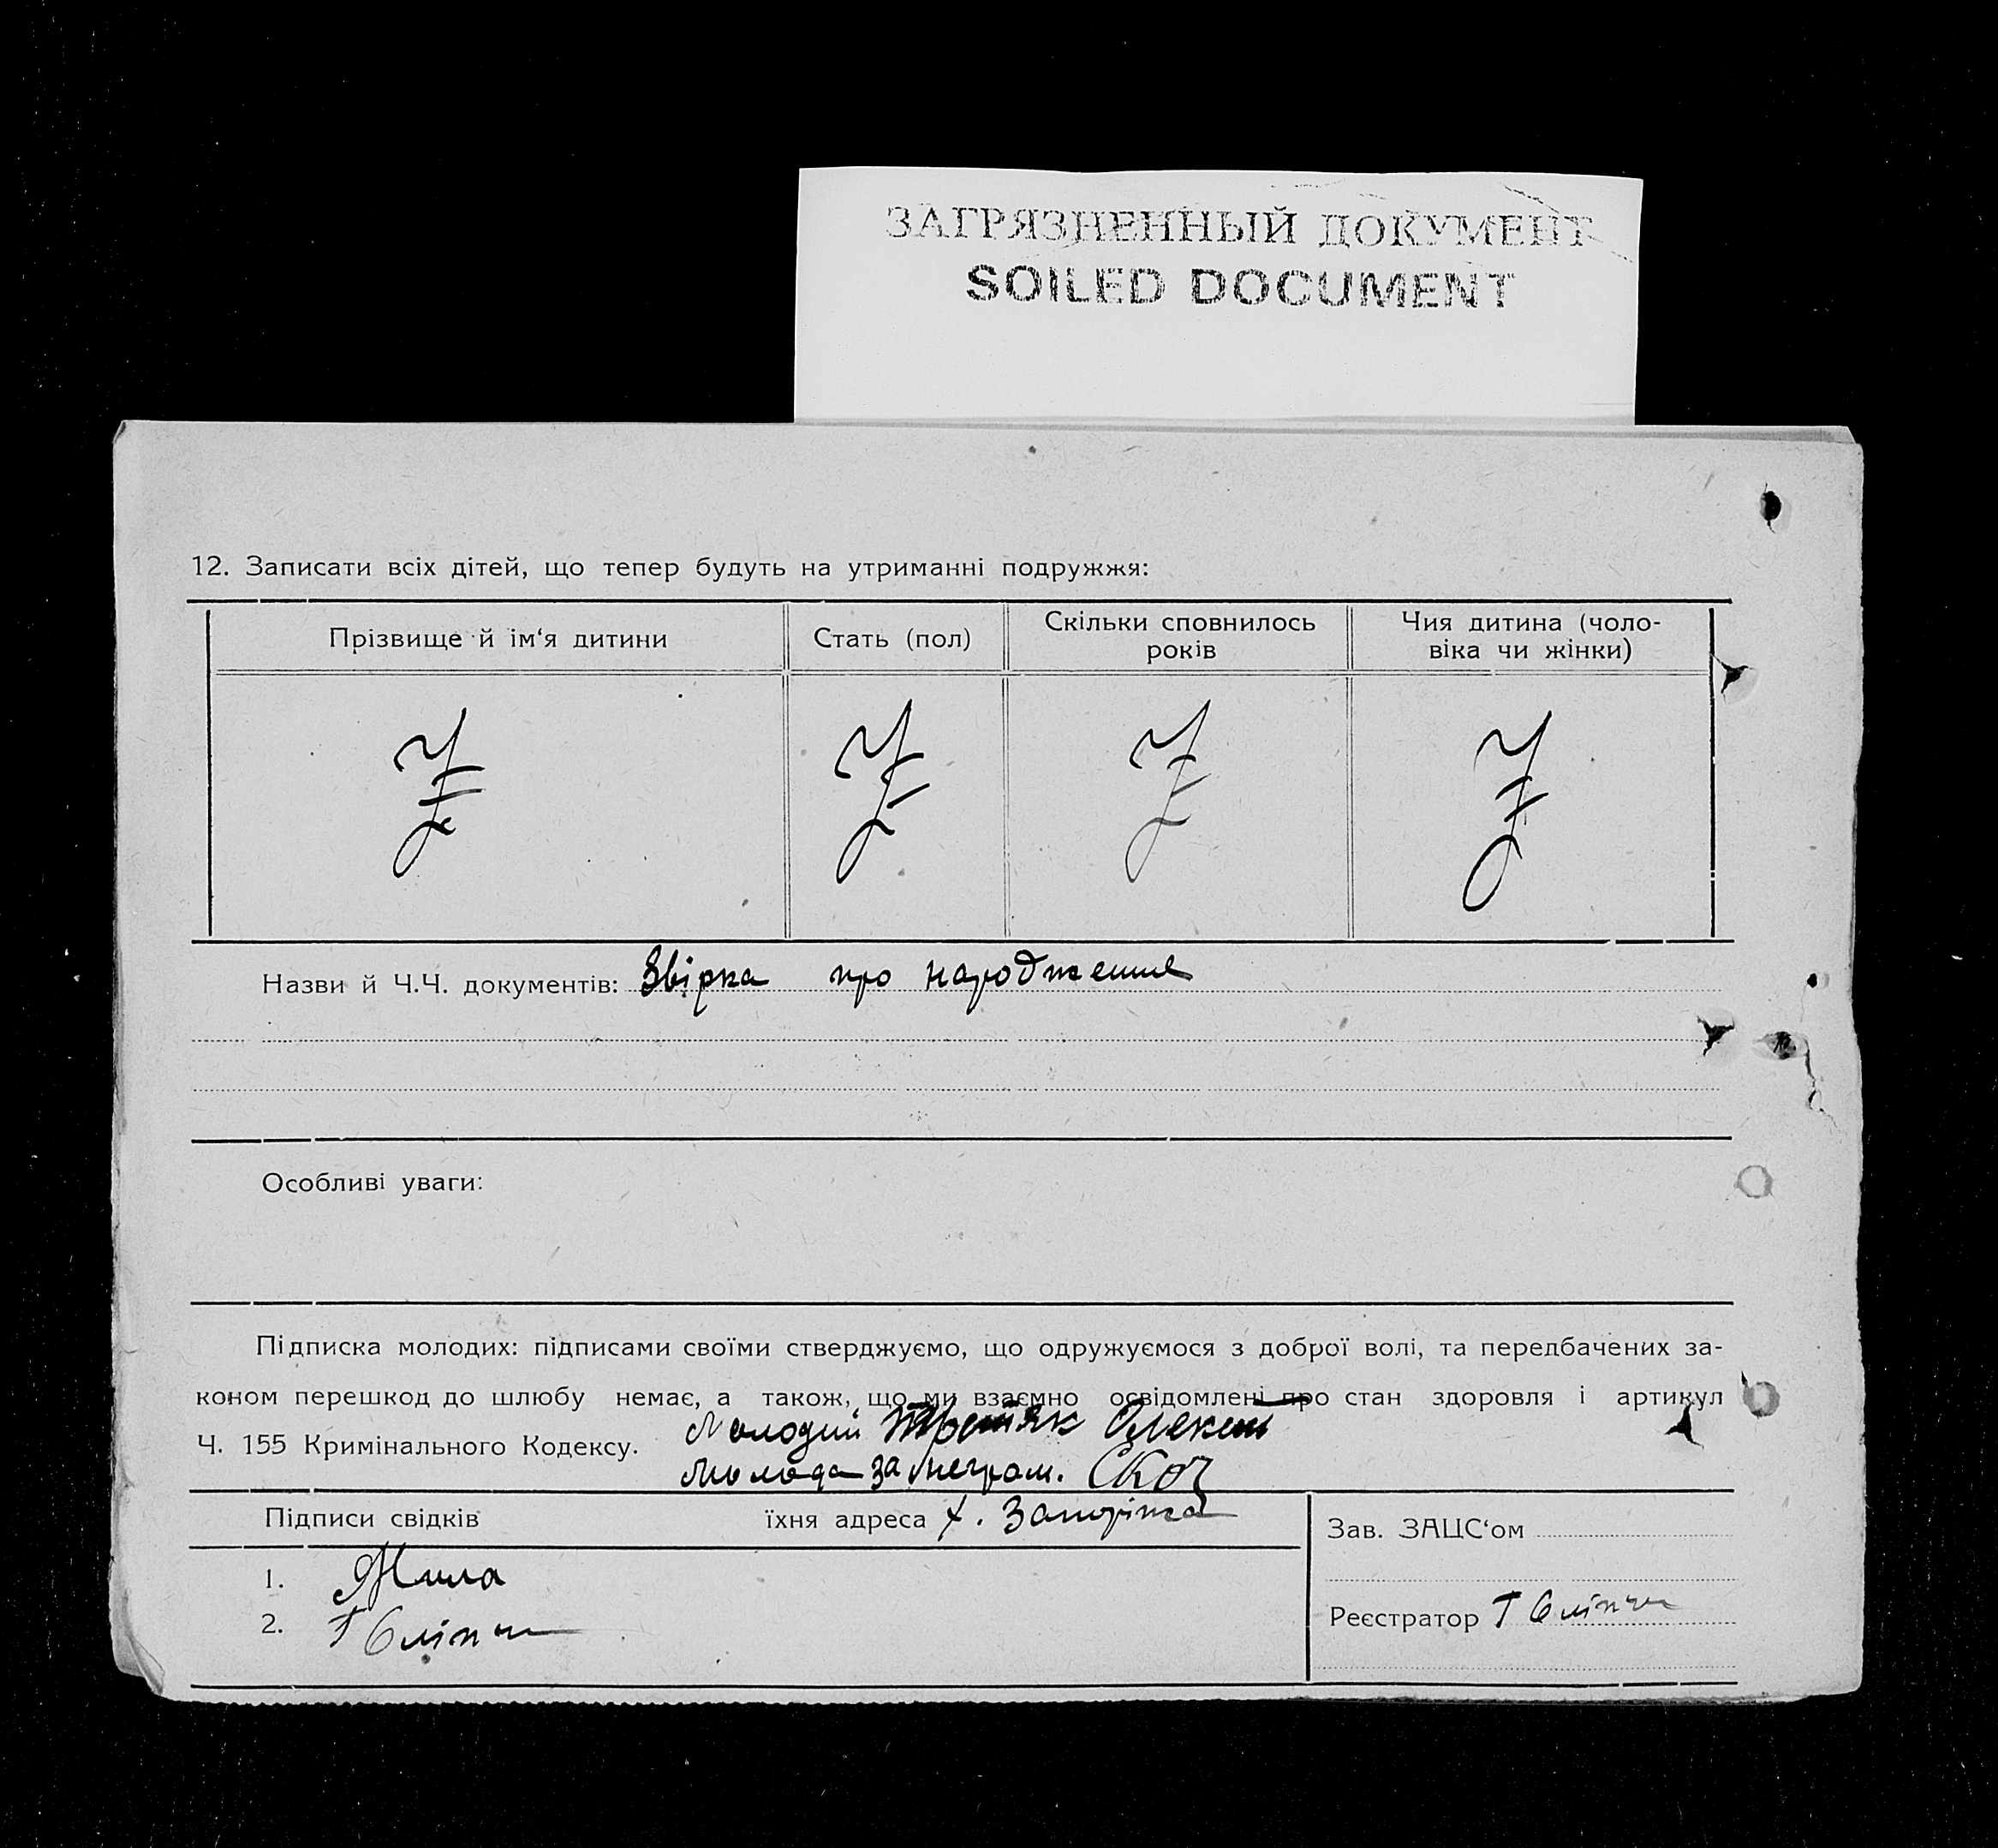 ЗАГРЯЗНЕННЫЙ ДОКУМЕНТ
SOILED DOCUMENT
12. Записати всіх дітей, що тепер будуть на утриманні подружжя:
Прізвище й ім‘я дитини
Стать (пол)
Скільки сповнилось
років
Чия дитина (чоло-
віка чи жінки)
Назви й Ч.Ч. документів: Звірка про народження
Особливі уваги:
Підписка молодих: підписами своїми стверджуємо, що одружуємося з доброї волі, та передбачених за-
коном перешкод до шлюбу немає, а також, що ми взаємно освідомлені про стан здоровля і артикул
Ч. 155 Кримінального Кодексу. Молодий Третяк Олексій
Молода за неграм.
Підписи свідків їхня адреса х.
Зав. ЗАЦС‘ом
1.
2.
Реєстратор